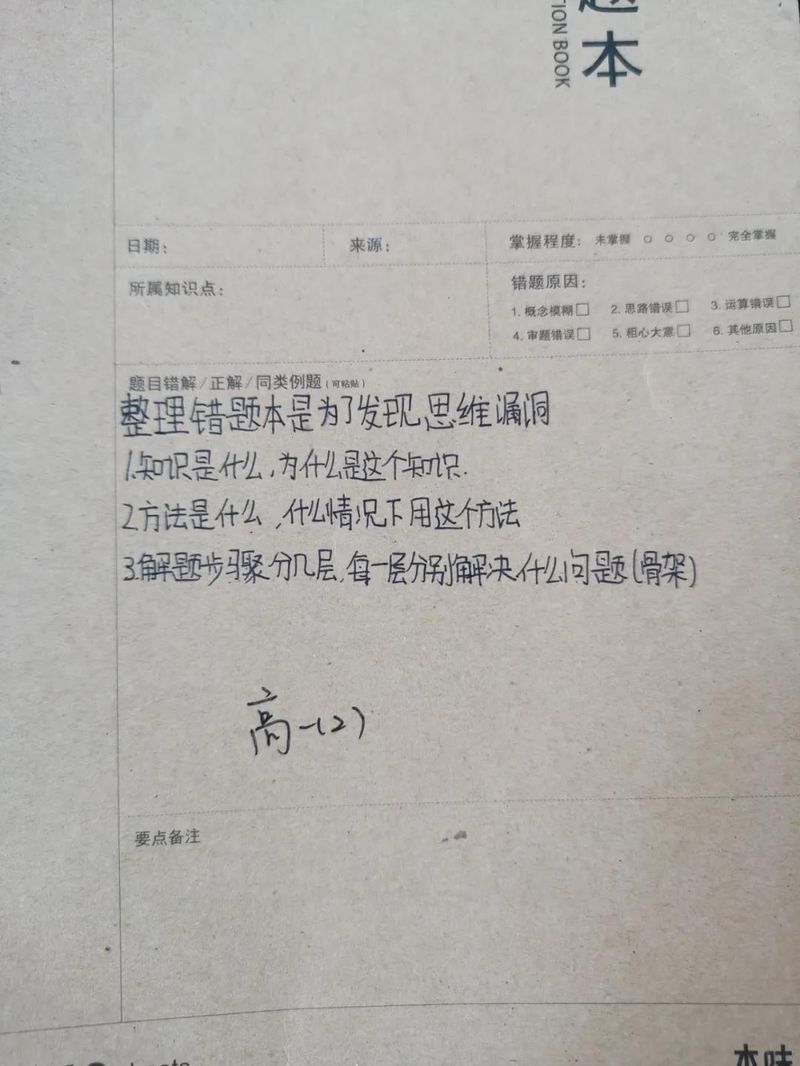 题
本
TION BOOK
日期： 来源： 掌握程度： 未掌握 ○ ○ ○ ○ 完全掌握
所属知识点： 错题原因：
1. 概念模糊□ 2. 思路错误□ 3. 运算错误□
4. 审题错误□ 5. 粗心大意□ 6. 其他原因□
题目错解/正解/同类例题(可粘贴)
整理错题本是为了发现思维漏洞
1.知识是什么,为什么是这个知识.
2方法是什么,什么情况下用这个方法
3.解题步骤分几层,每一层分别解决什么问题(骨架)
高一(2)
要点备注
本味